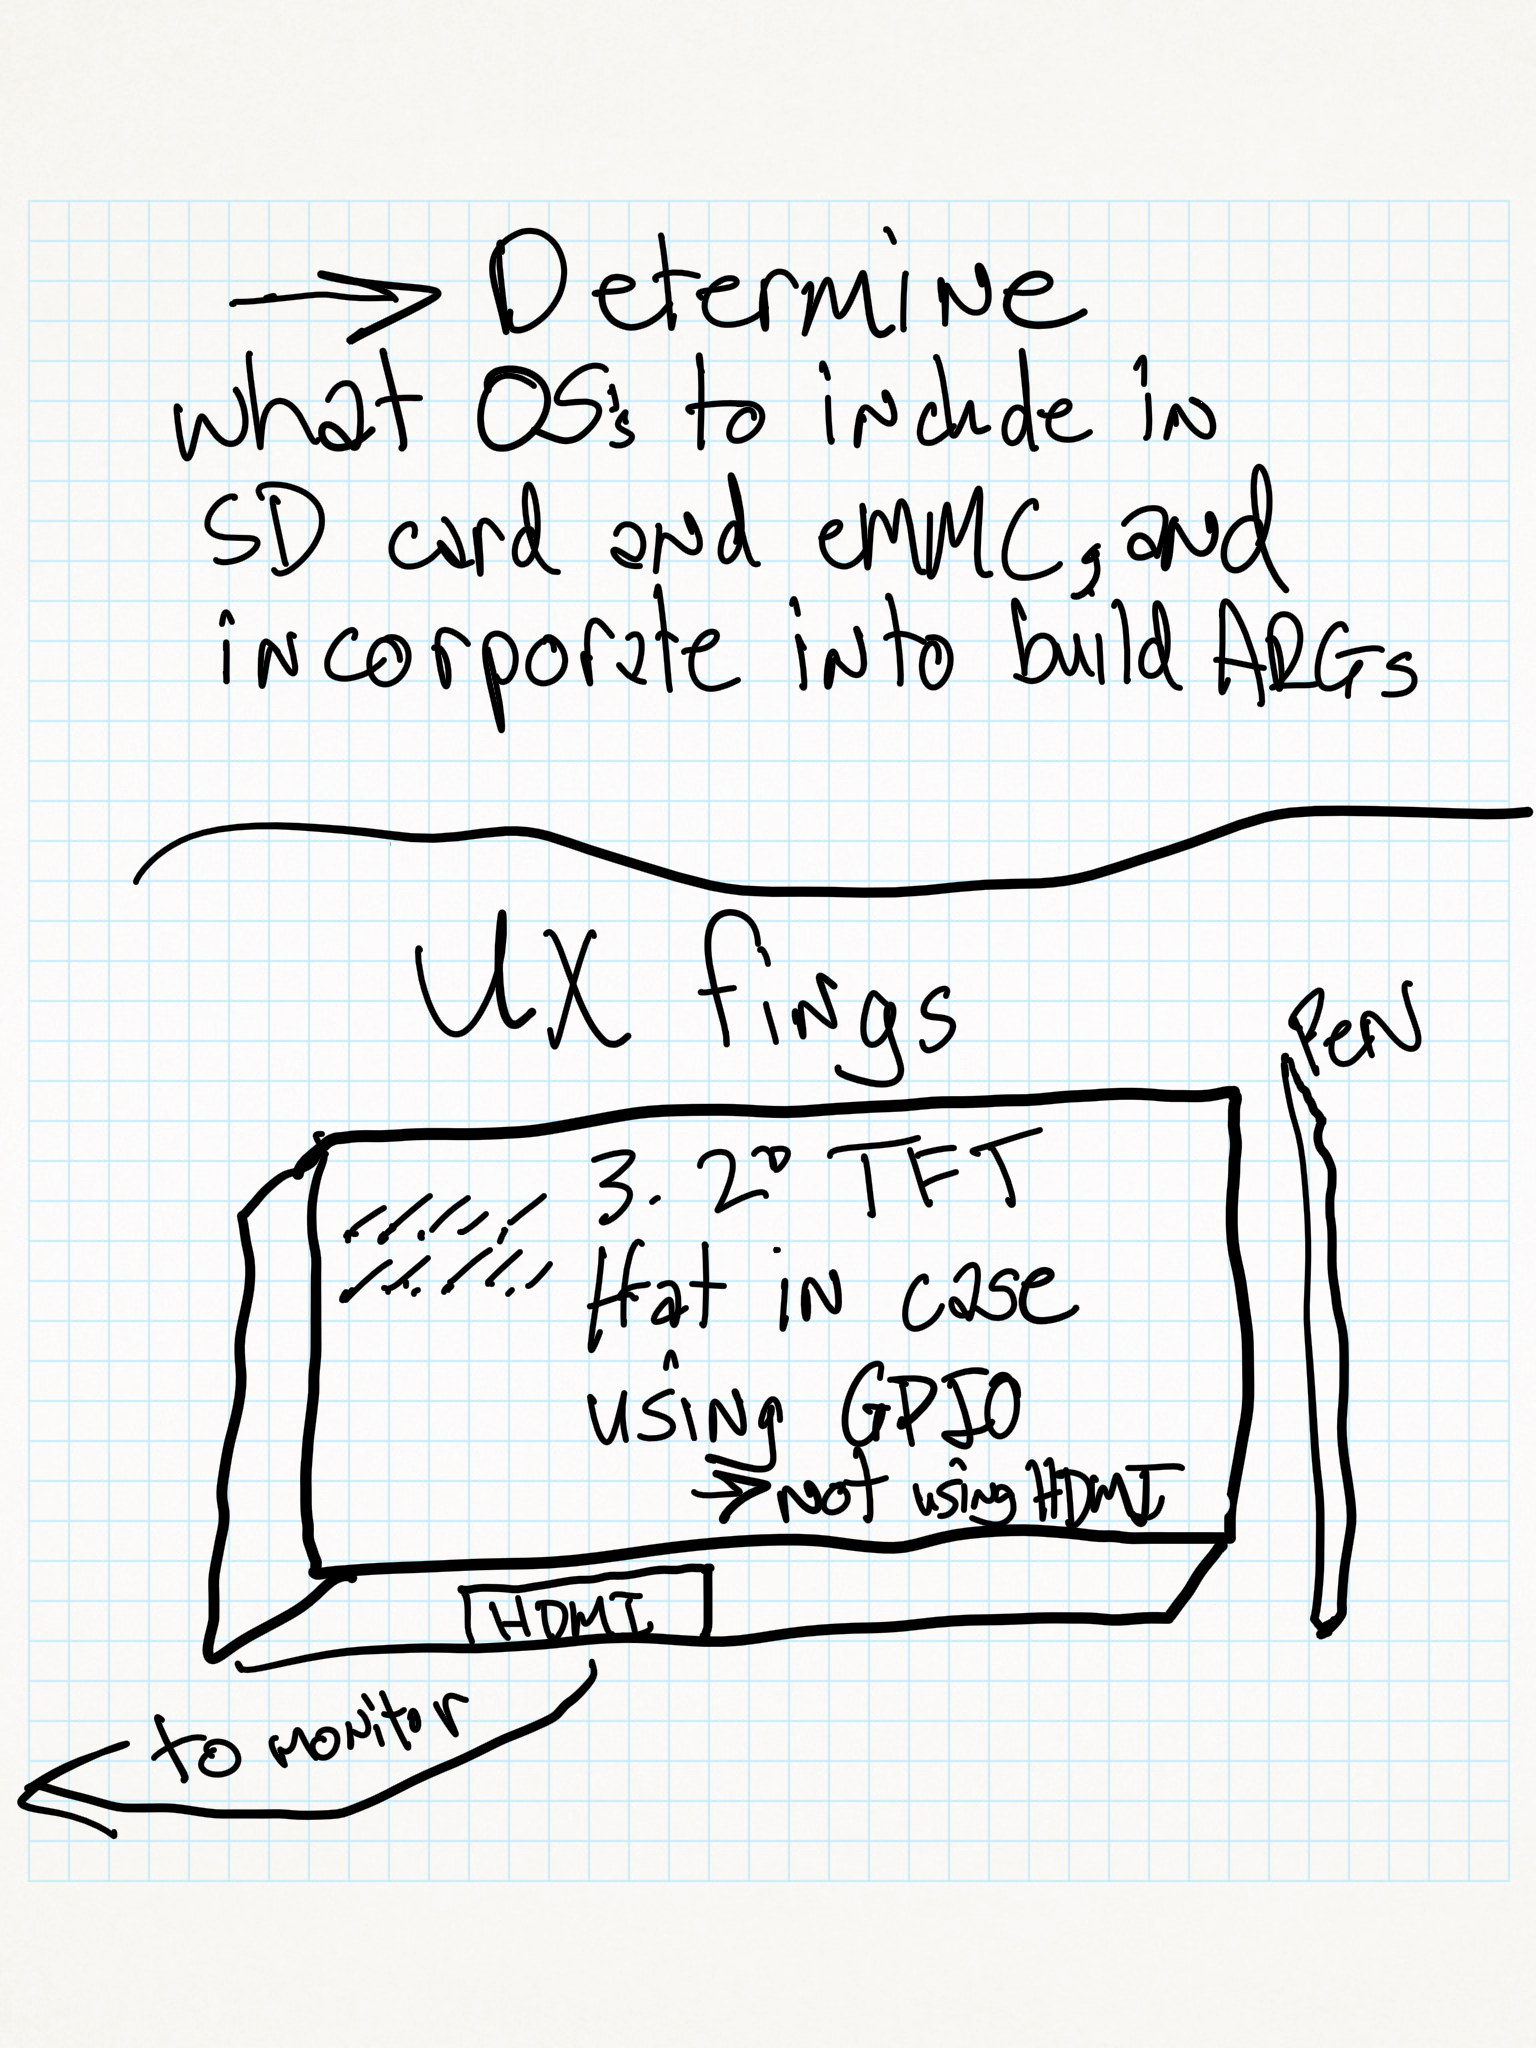 → Determine
what OS's to include in
SD card and eMMC, and
incorporate into build ARGs
UX fings
PeN
3.2" TFT
Hat in case
using GPIO
→ Not using HDMI
HDMI
to monitor